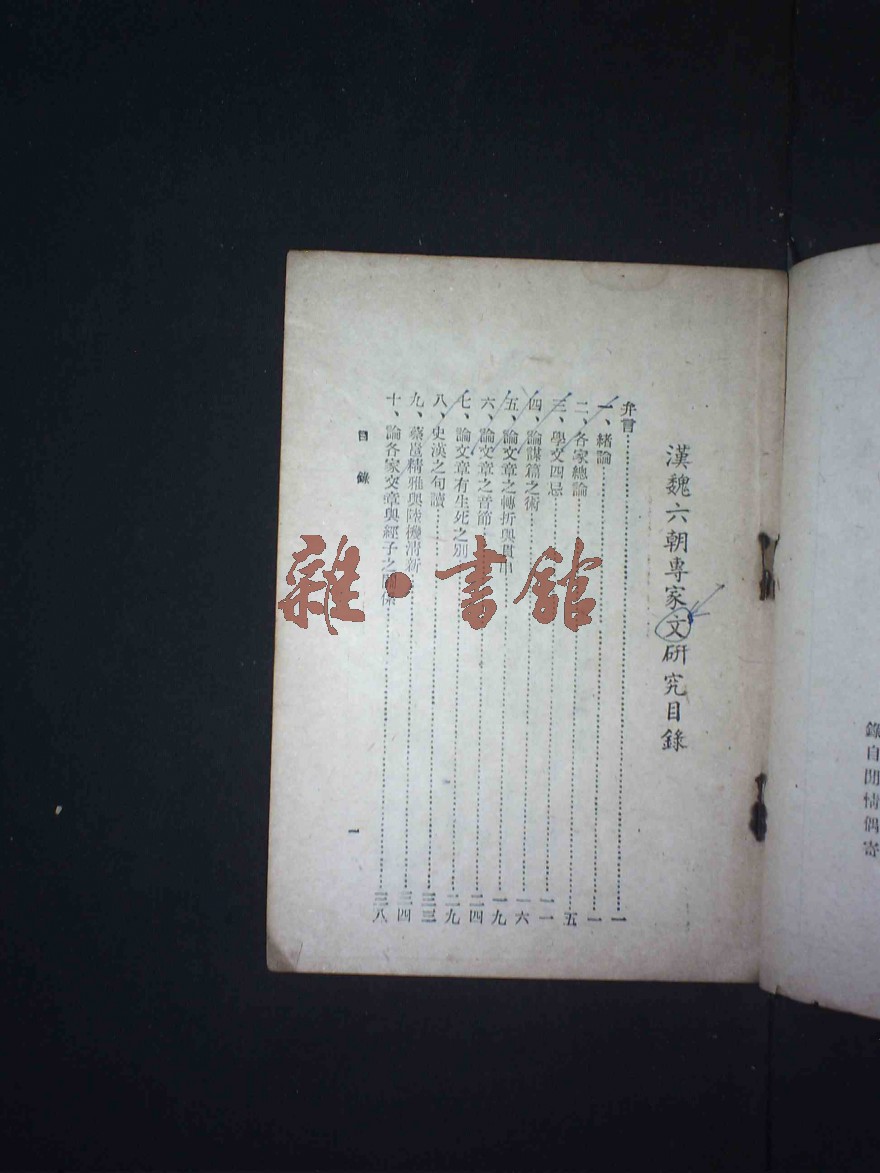 錄自閒情偶寄
漢魏六朝專家文研究目錄
弁言……一
一、緒論……一
二、各家總論……五
三、學文四忌……一一
四、論謀篇之術……一六
五、論文章之轉折與貫串……一九
六、論文章之音節……二四
七、論文章有生死之別……二九
八、史漢之句讀……三三
九、蔡邕精雅與陸機清新……三四
十、論各家文章與經子之關係……三八
目錄
一
雜·書館